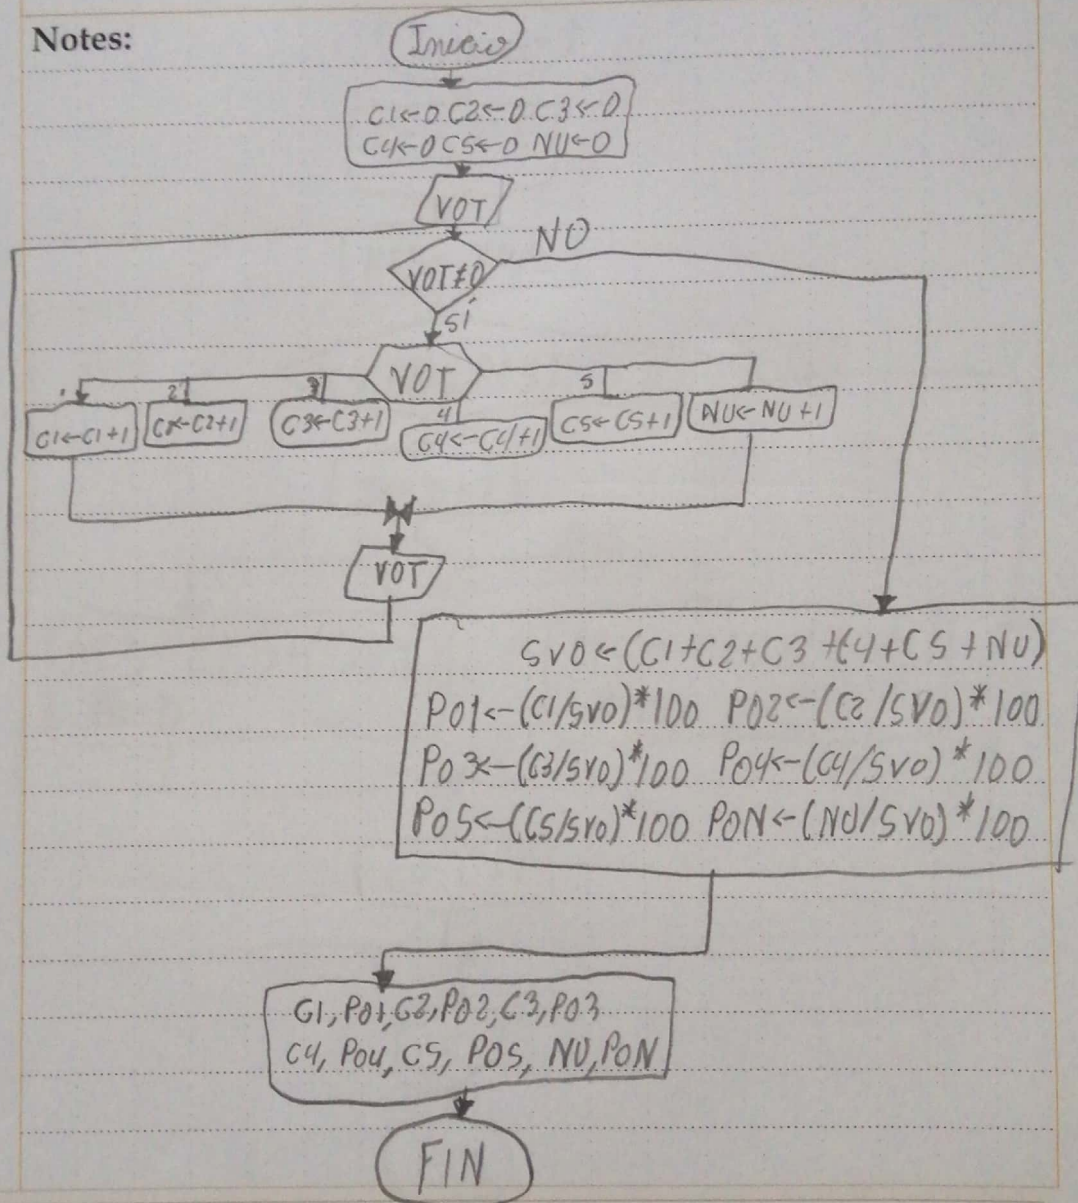 Notes:
Inicio
C1←0 C2←0 C3←0
C4←0 C5←0 NU←0
VOT
NO
VOT≠0
SÍ
VOT
1 2 3 4 5
C1←C1+1
C2←C2+1
C3←C3+1
C4←C4+1
C5←C5+1
NU←NU+1
VOT
SVO←(C1+C2+C3+C4+C5+NU)
PO1←(C1/SVO)*100 PO2←(C2/SVO)*100
PO3←(C3/SVO)*100 PO4←(C4/SVO)*100
PO5←(C5/SVO)*100 PON←(NU/SVO)*100
C1, PO1, C2, PO2, C3, PO3
C4, PO4, C5, PO5, NU, PON
FIN